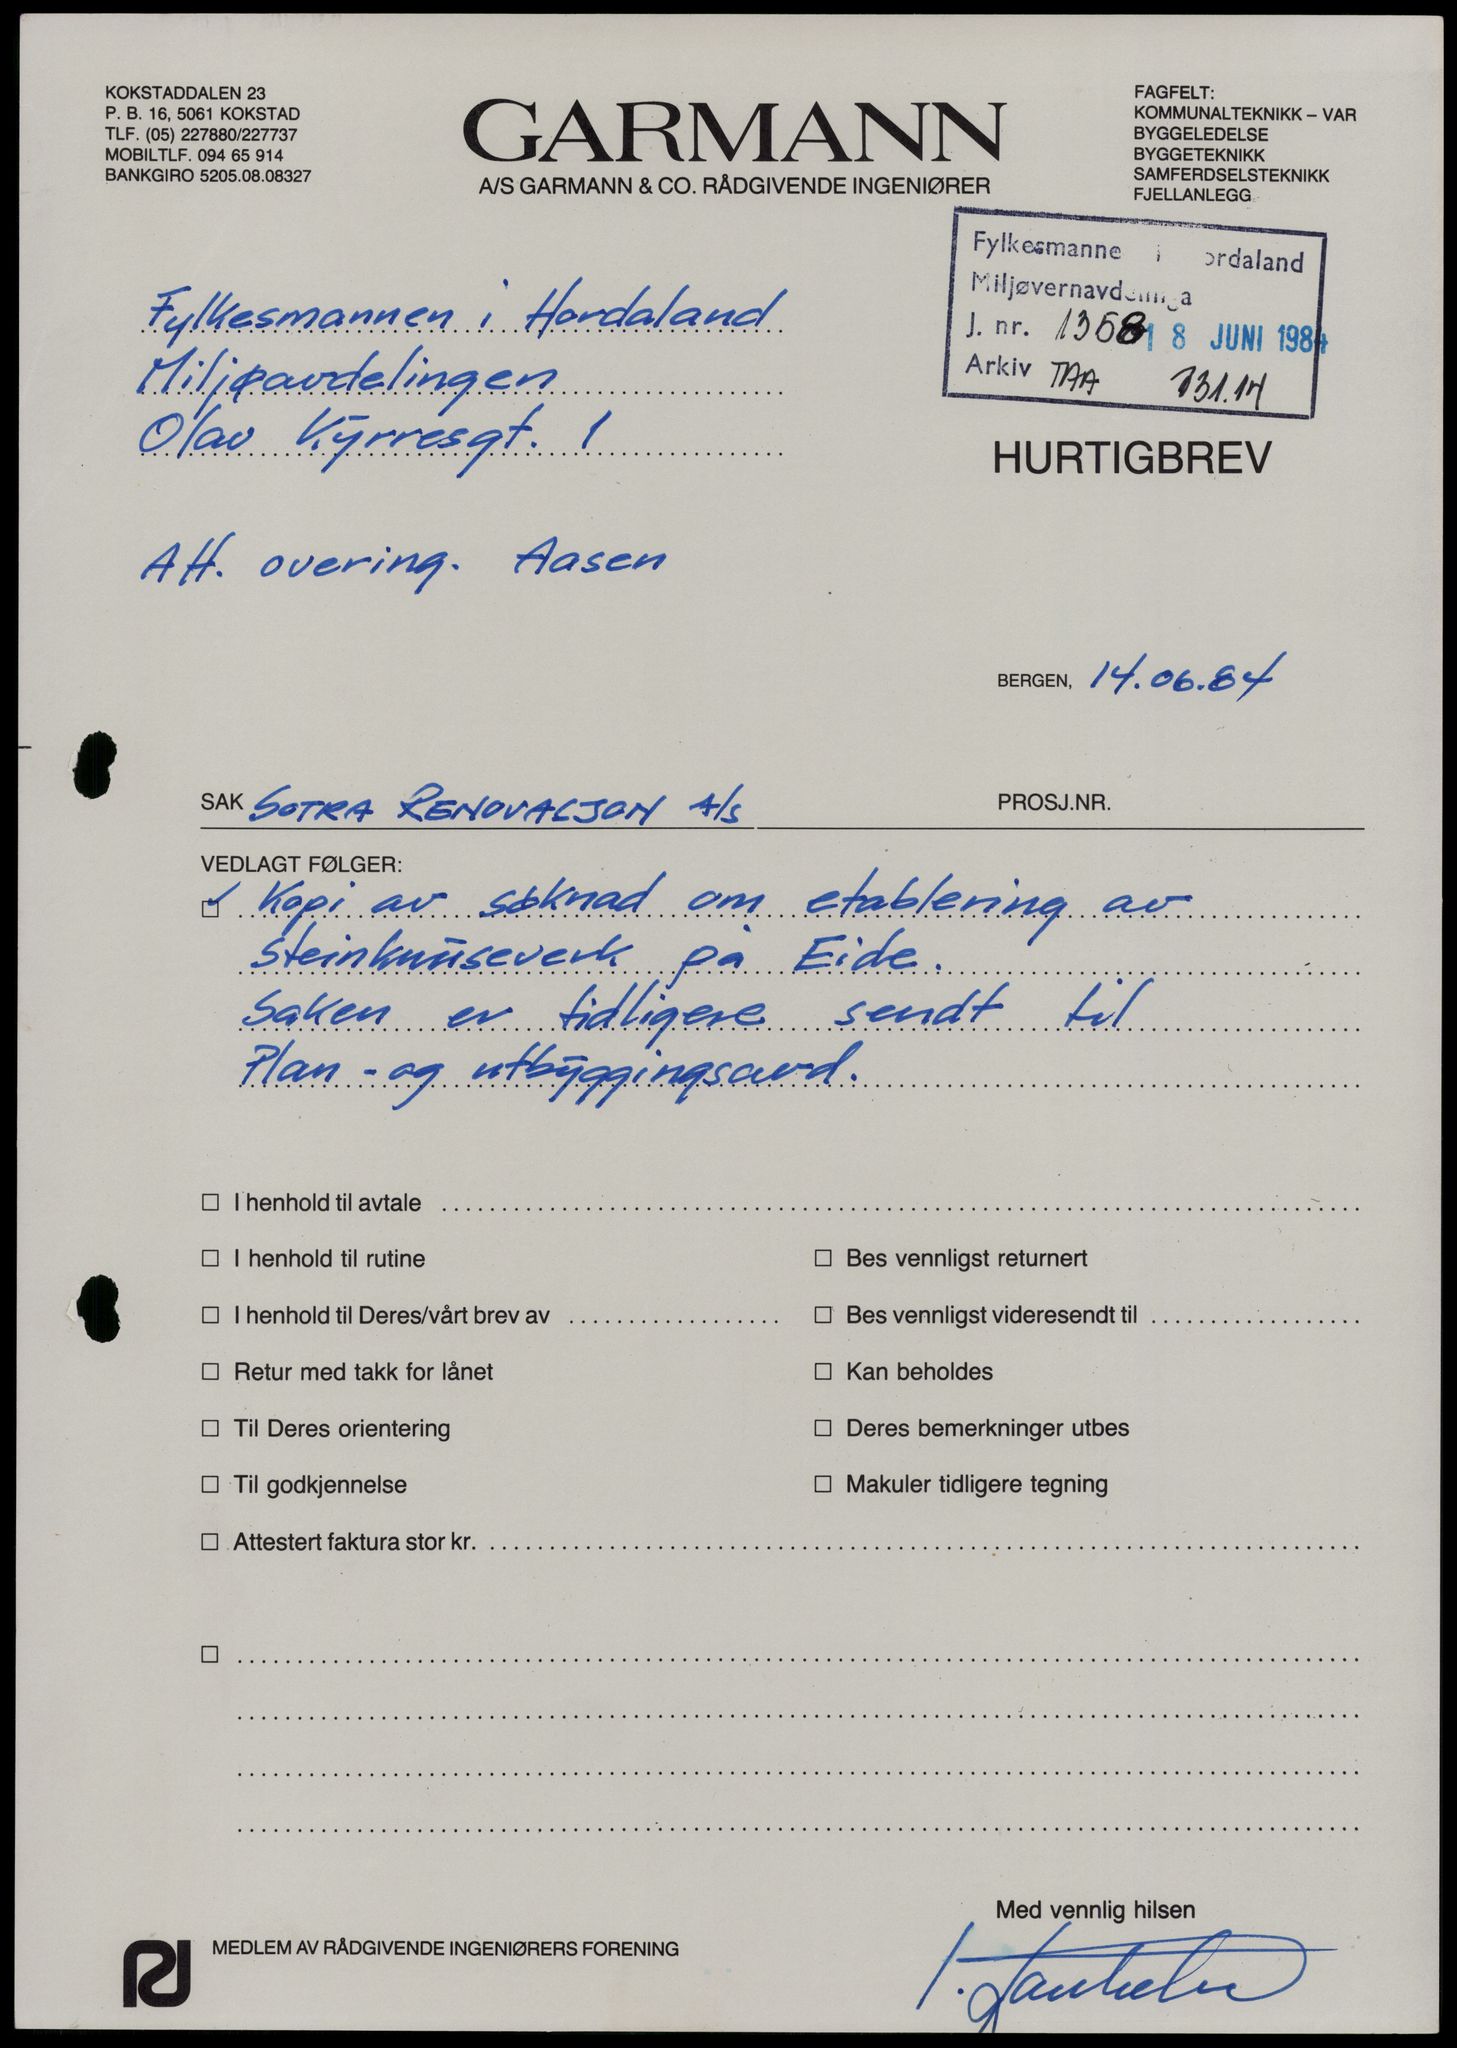 KOKSTADDALEN 23
P. B. 16, 5061 KOKSTAD
TLF. (05) 227880/227737
MOBILTLF. 094 65 914
BANKGIRO 5205.08.08327
GARMANN
A/S GARMANN & CO. RÅDGIVENDE INGENIØRER
FAGFELT:
KOMMUNALTEKNIKK – VAR
BYGGELEDELSE
BYGGETEKNIKK
SAMFERDSELSTEKNIKK
FJELLANLEGG
Fylkesmanne i ordaland
Miljøvernavdelinga
J. nr. 1368 18 JUNI 1984
Arkiv TAA 731.14
Fylkesmannen i Hordaland
Miljøavdelingen
Olav Kyrresgt. 1
HURTIGBREV
Att. overing. Aasen
BERGEN, 14.06.84
SAK SOTRA RENOVASJON A/S PROSJ.NR.
VEDLAGT FØLGER:
✓ Kopi av søknad om etablering av
steinknuseverk på Eide.
Saken er tidligere sendt til
Plan- og utbyggingsavd.
☐ I henhold til avtale
☐ I henhold til rutine ☐ Bes vennligst returnert
☐ I henhold til Deres/vårt brev av ☐ Bes vennligst videresendt til
☐ Retur med takk for lånet ☐ Kan beholdes
☐ Til Deres orientering ☐ Deres bemerkninger utbes
☐ Til godkjennelse ☐ Makuler tidligere tegning
☐ Attestert faktura stor kr.
Med vennlig hilsen
MEDLEM AV RÅDGIVENDE INGENIØRERS FORENING